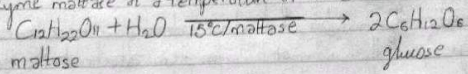 yme maltase at a temperature
C12H22O11 + H2O 15°C/maltase → 2C6H12O6
maltose glucose